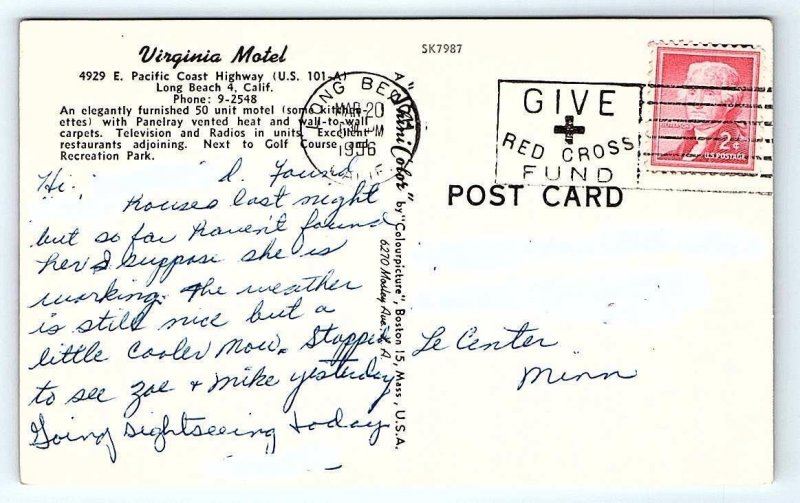 Virginia Motel
4929 E. Pacific Coast Highway (U.S. 101-A)
Long Beach 4, Calif.
Phone: 9-2548
An elegantly furnished 50 unit motel (some kitchen-
ettes) with Panelray vented heat and wall-to-wall
carpets. Television and Radios in units. Excellent
restaurants adjoining. Next to Golf Course and
Recreation Park.
SK7987
LONG BEACH
MAR 20
PM
1956
CALIF.
GIVE
RED CROSS
FUND
2¢
U.S. POSTAGE
POST CARD
A "ShiniColor" by "Colourpicture", Boston 15, Mass., U.S.A.
6270 Mosley Ave. L. A.
Hi. I. Found
Rouses last night
but so far haven't found
her I suppose she is
working. The weather
is still nice but a
little cooler now. Stopped
to see Zoe + Mike yesterday
Going sightseeing today
Le Center
Minn